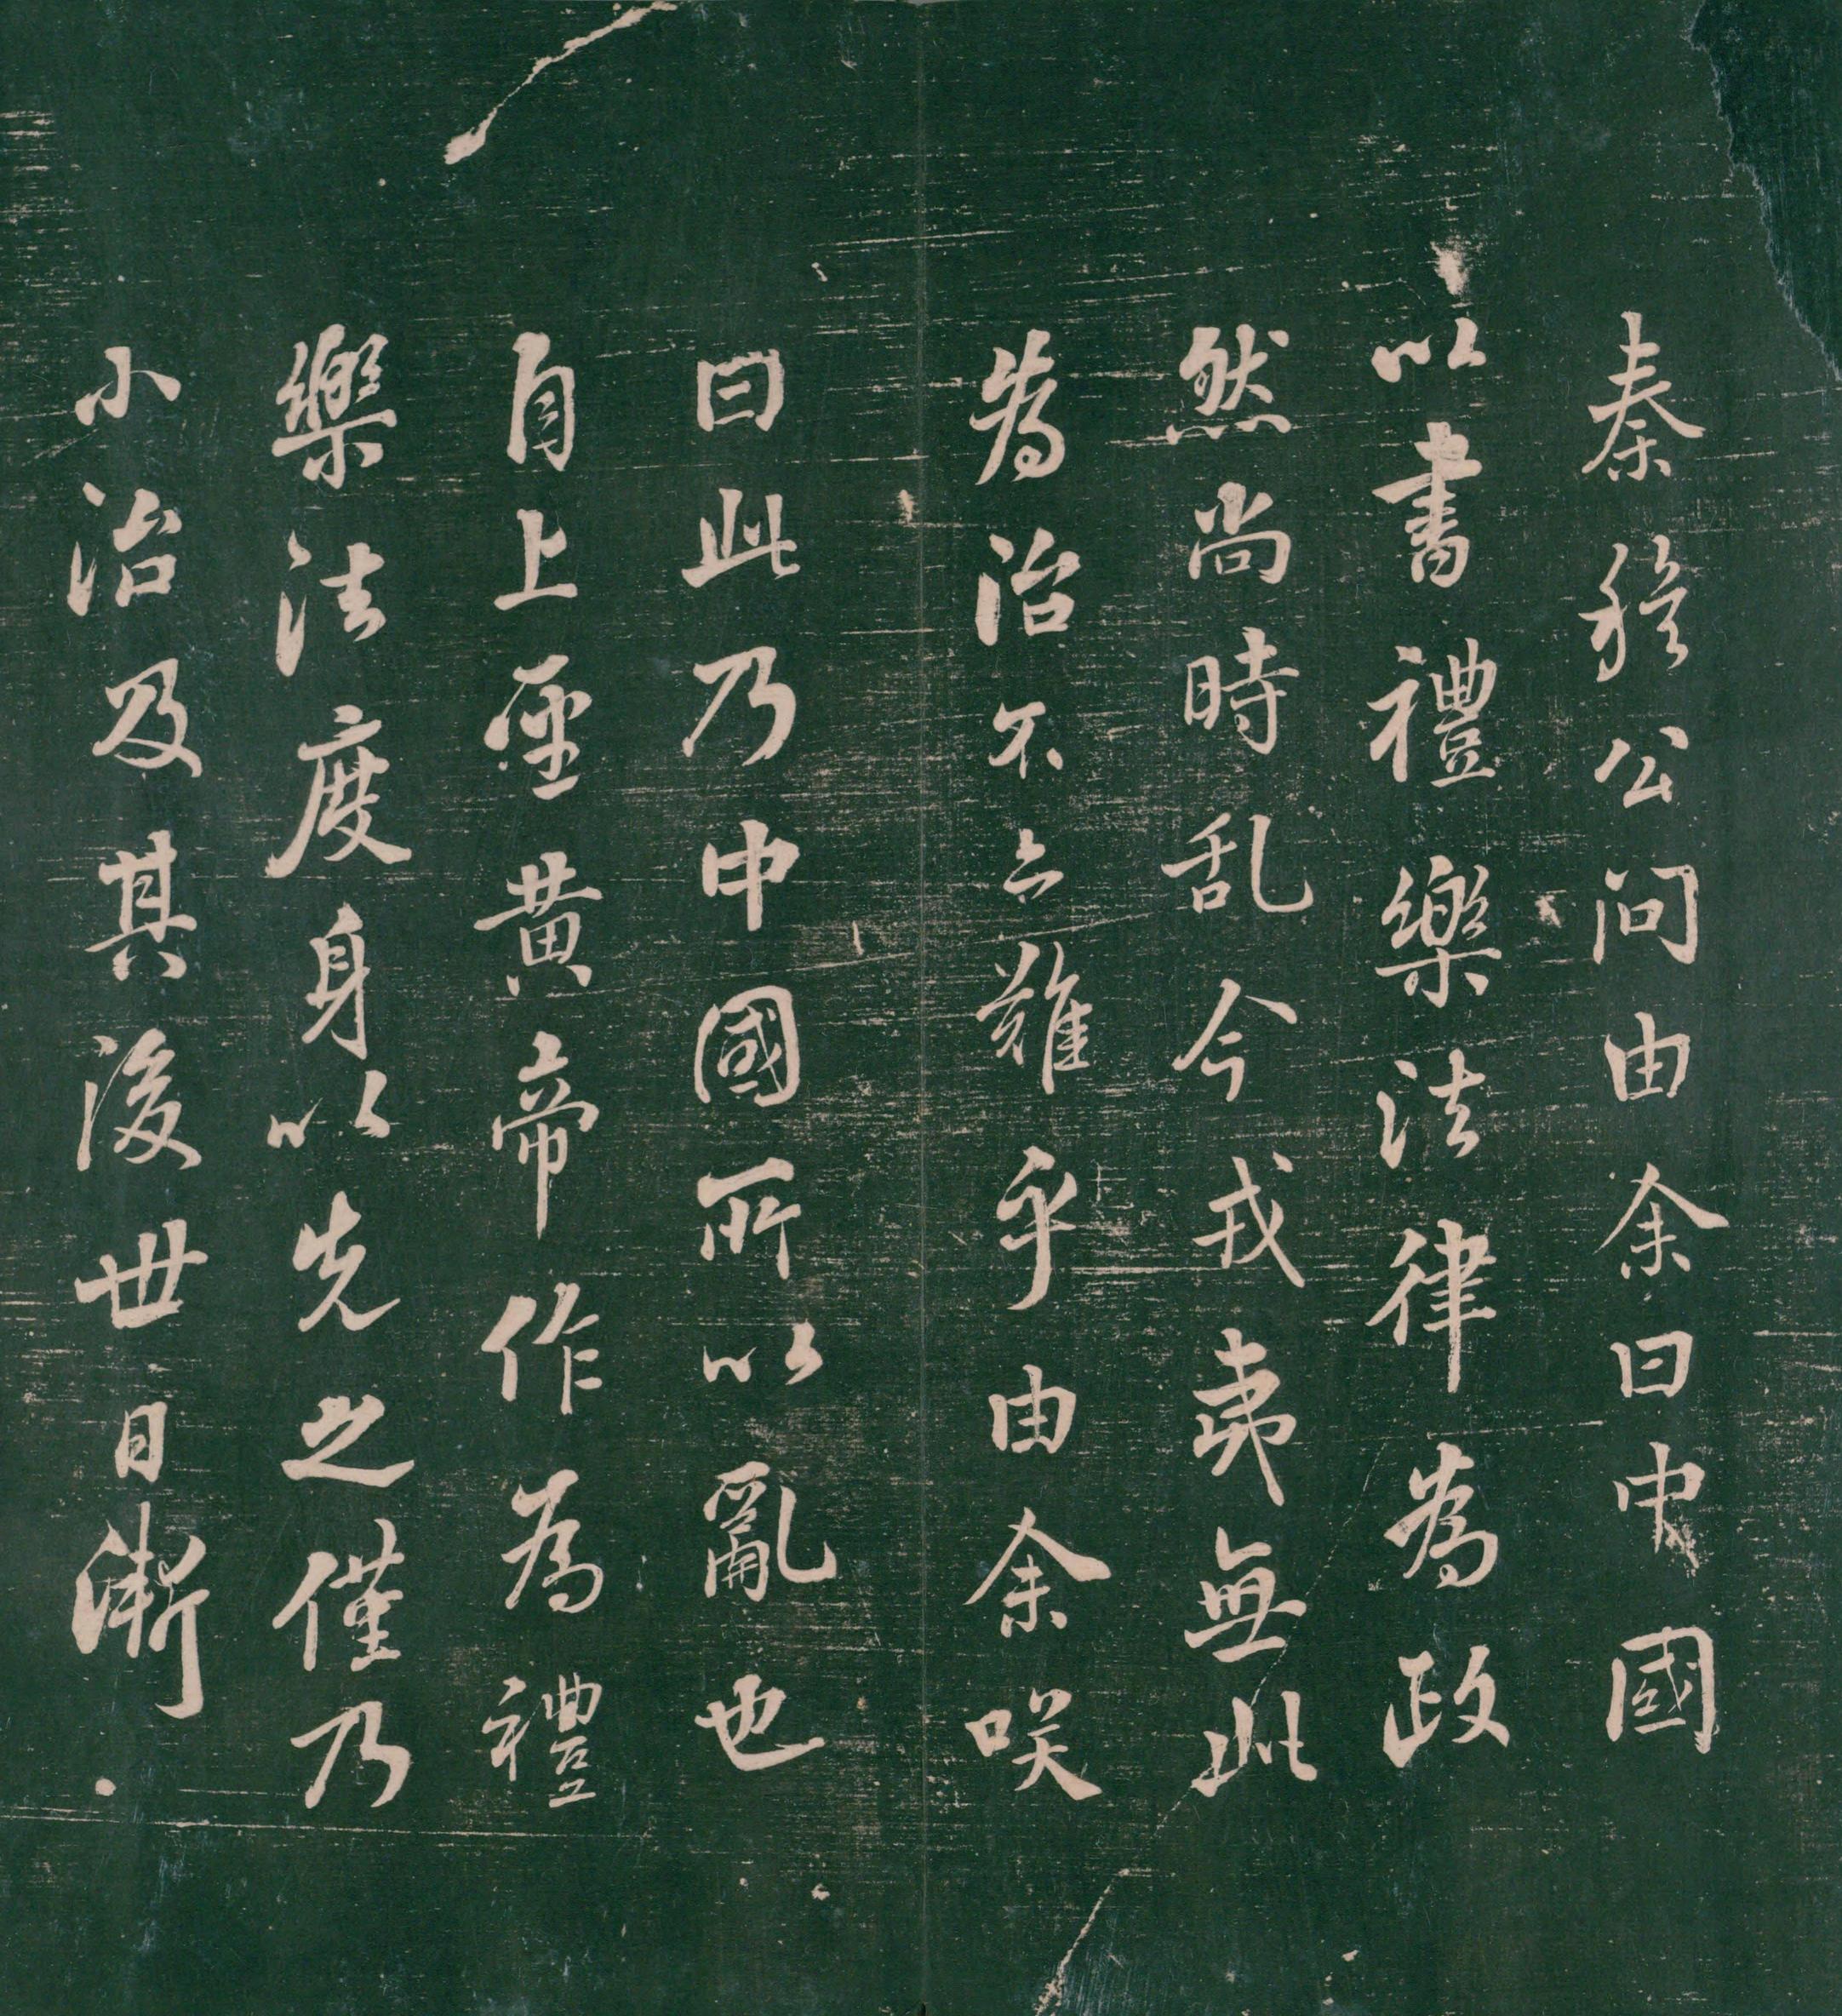 秦穆公问由余曰中國
以書禮樂法律為政
然尚時乱今戎夷無此
為治不亦難乎由余咲
曰此乃中國所以亂也
自上聖黄帝作為禮
樂法度身以先之僅乃
小治及其後世日漸